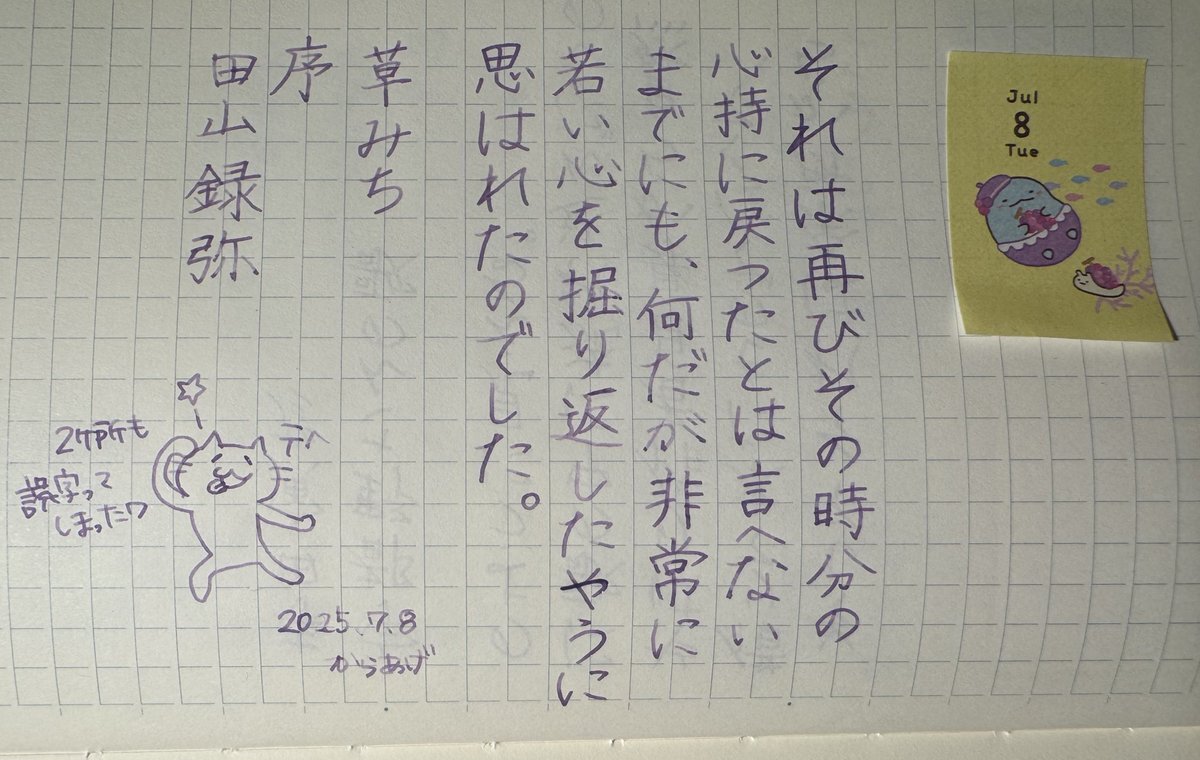 それは再びその時分の
心持に戻つたとは言へない
までにも、何だが非常に
若い心を掘り返したやうに
思はれたのでした。
草みち
序
田山録弥
Jul
8
Tue
テヘ
2ケ所も
誤字って
しまったワ
2025.7.8
からあげ